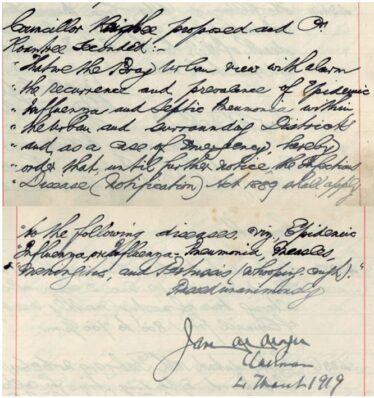 Councillor proposed and Cr.
Rountree seconded :-
"That we the Bray Urban view with alarm
"the recurrence and prevalence of Epidemic
"Influenza and Septic Pneumonia within
"the Urban and surrounding District
"and, as a case of Emergency, hereby
"order that, until further notice, the Infectious
"Disease (Notification) Act 1889 shall apply
"to the following diseases, viz, Epidemic
"Influenza, or Influenzal Pneumonia, Measles,
"Meningitis, and Pertussis (whooping cough)."
Passed unanimously
Chairman
4 March 1919